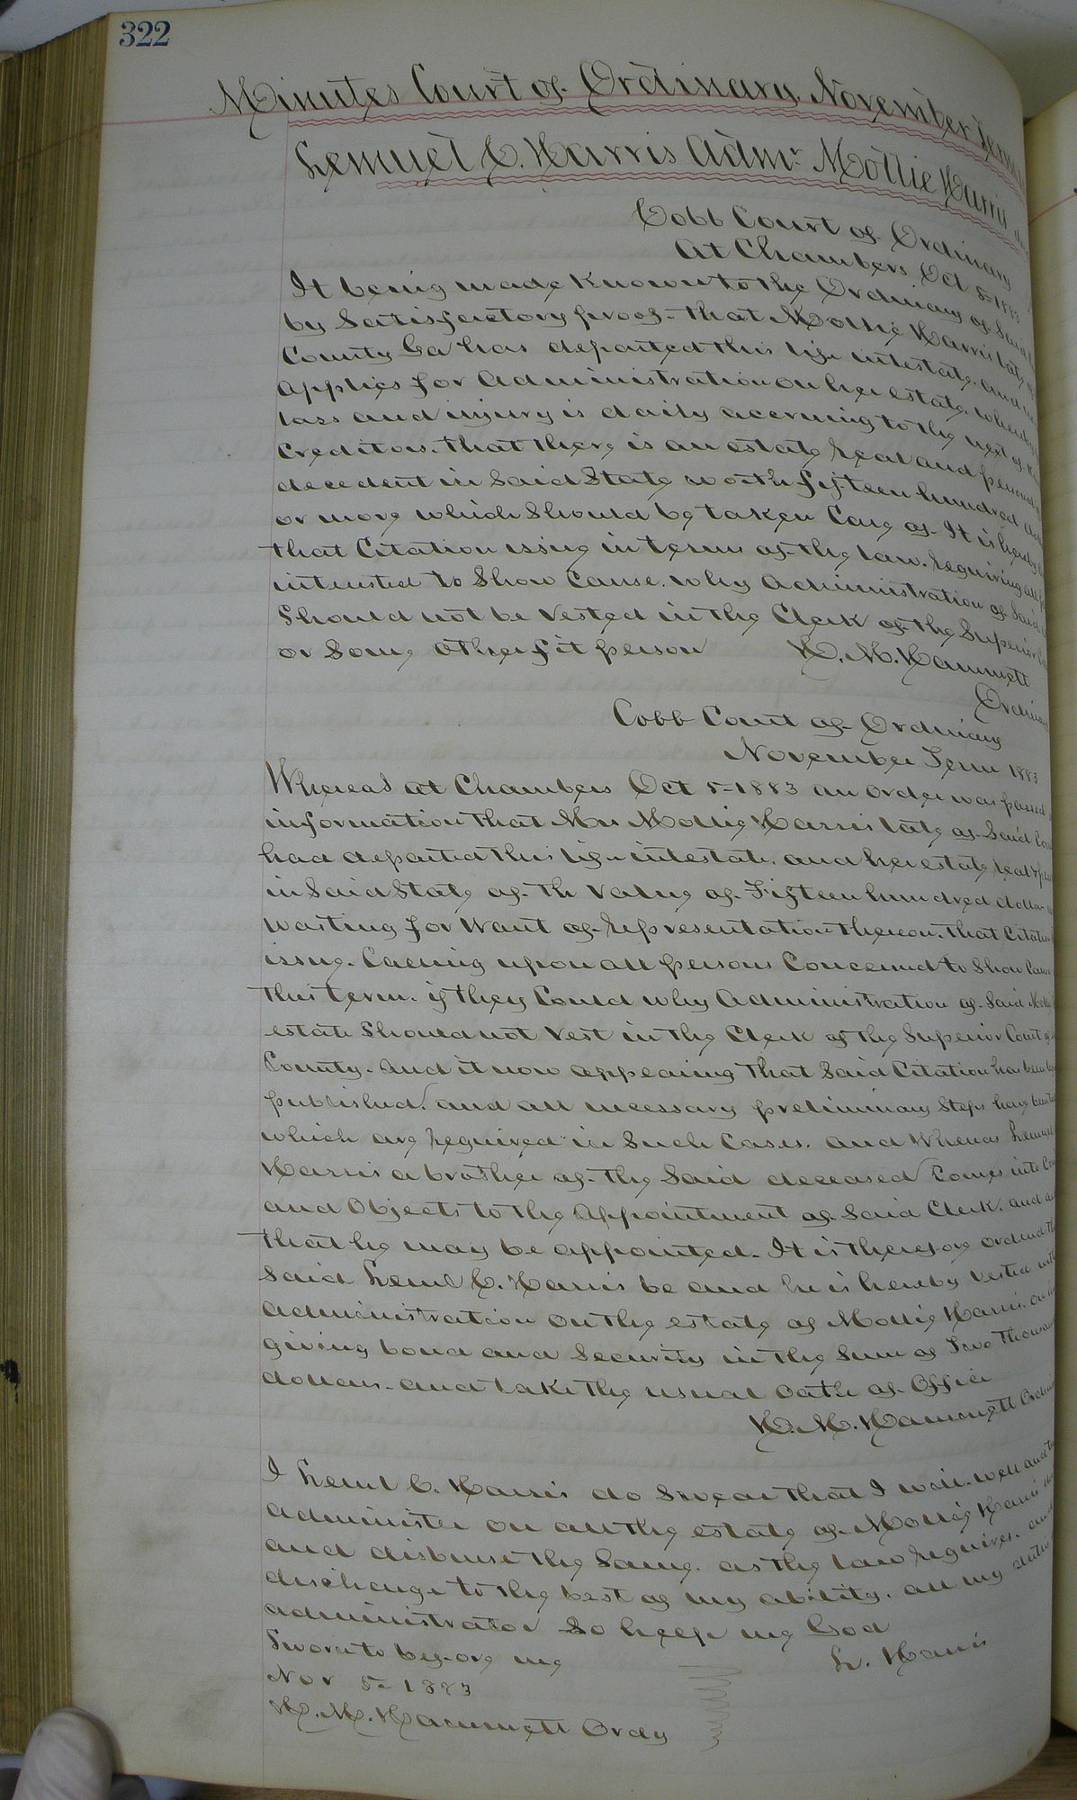 322
Minutes Court of Ordinary, November Term
Lemuel C. Harris Admr Mollie Harris
Cobb Court of Ordinary
At Chambers Oct 5-1883
It being made known to the Ordinary of Said
by Satisfactory proof- that Mollie Harris late of
County Ga has departed this life intestate, and
applies for Administration on her estate, whereby
loss and injury is daily accruing to the next of Kin
Creditors. that there is an estate real and personal
decedent in Said State worth fifteen hundred
or more which Should be taken Care of. It is hereby
that Citation issue in terms of the law. requiring all
interested to Show Cause, why Administration of Said
Should not be Vested in the Clerk of the Superior
or Some other fit person H. M. Hammett
Ordinary
Cobb Court of Ordinary
November Term 1883
Whereas at Chambers Oct 5-1883 an order was passed
information that Mrs Mollie Harris late of Said
had departed this life intestate. and her estate, real &
in Said State of th Value of Fifteen hundred dollars
wasting for want of representation thereon. that Citation
issue. Calling upon all persons Concerned to Show Cause
this term. if they Could why Administration of Said
estate Should not Vest in the Clerk of the Superior Court
County. and it now appearing that Said Citation has been
published. and all necessary preliminary Steps have been
which are required in Such Cases. and Whereas Lemuel
Harris a brother of the Said deceased Comes into
and Objects to the appointment of Said Clerk. and
that he may be appointed. It is therefore ordered
Said Leml C. Harris be and he is hereby Vested with
administration on the estate of Mollie Harris. on
giving bond and Security in the Sum of Two Thousand
dollars. and take the usual oath of Office
H. M. Hammett
I Leml C. Harris do Swear that I will well and
administer on all the estate of Mollie Harris
and disburse the Same. as the law requires. and
discharge to the best of my ability. all my duties
administrator So help me God
Sworn to before me L. Harris
Nov 5-1883
H. M. Hammett Ordy